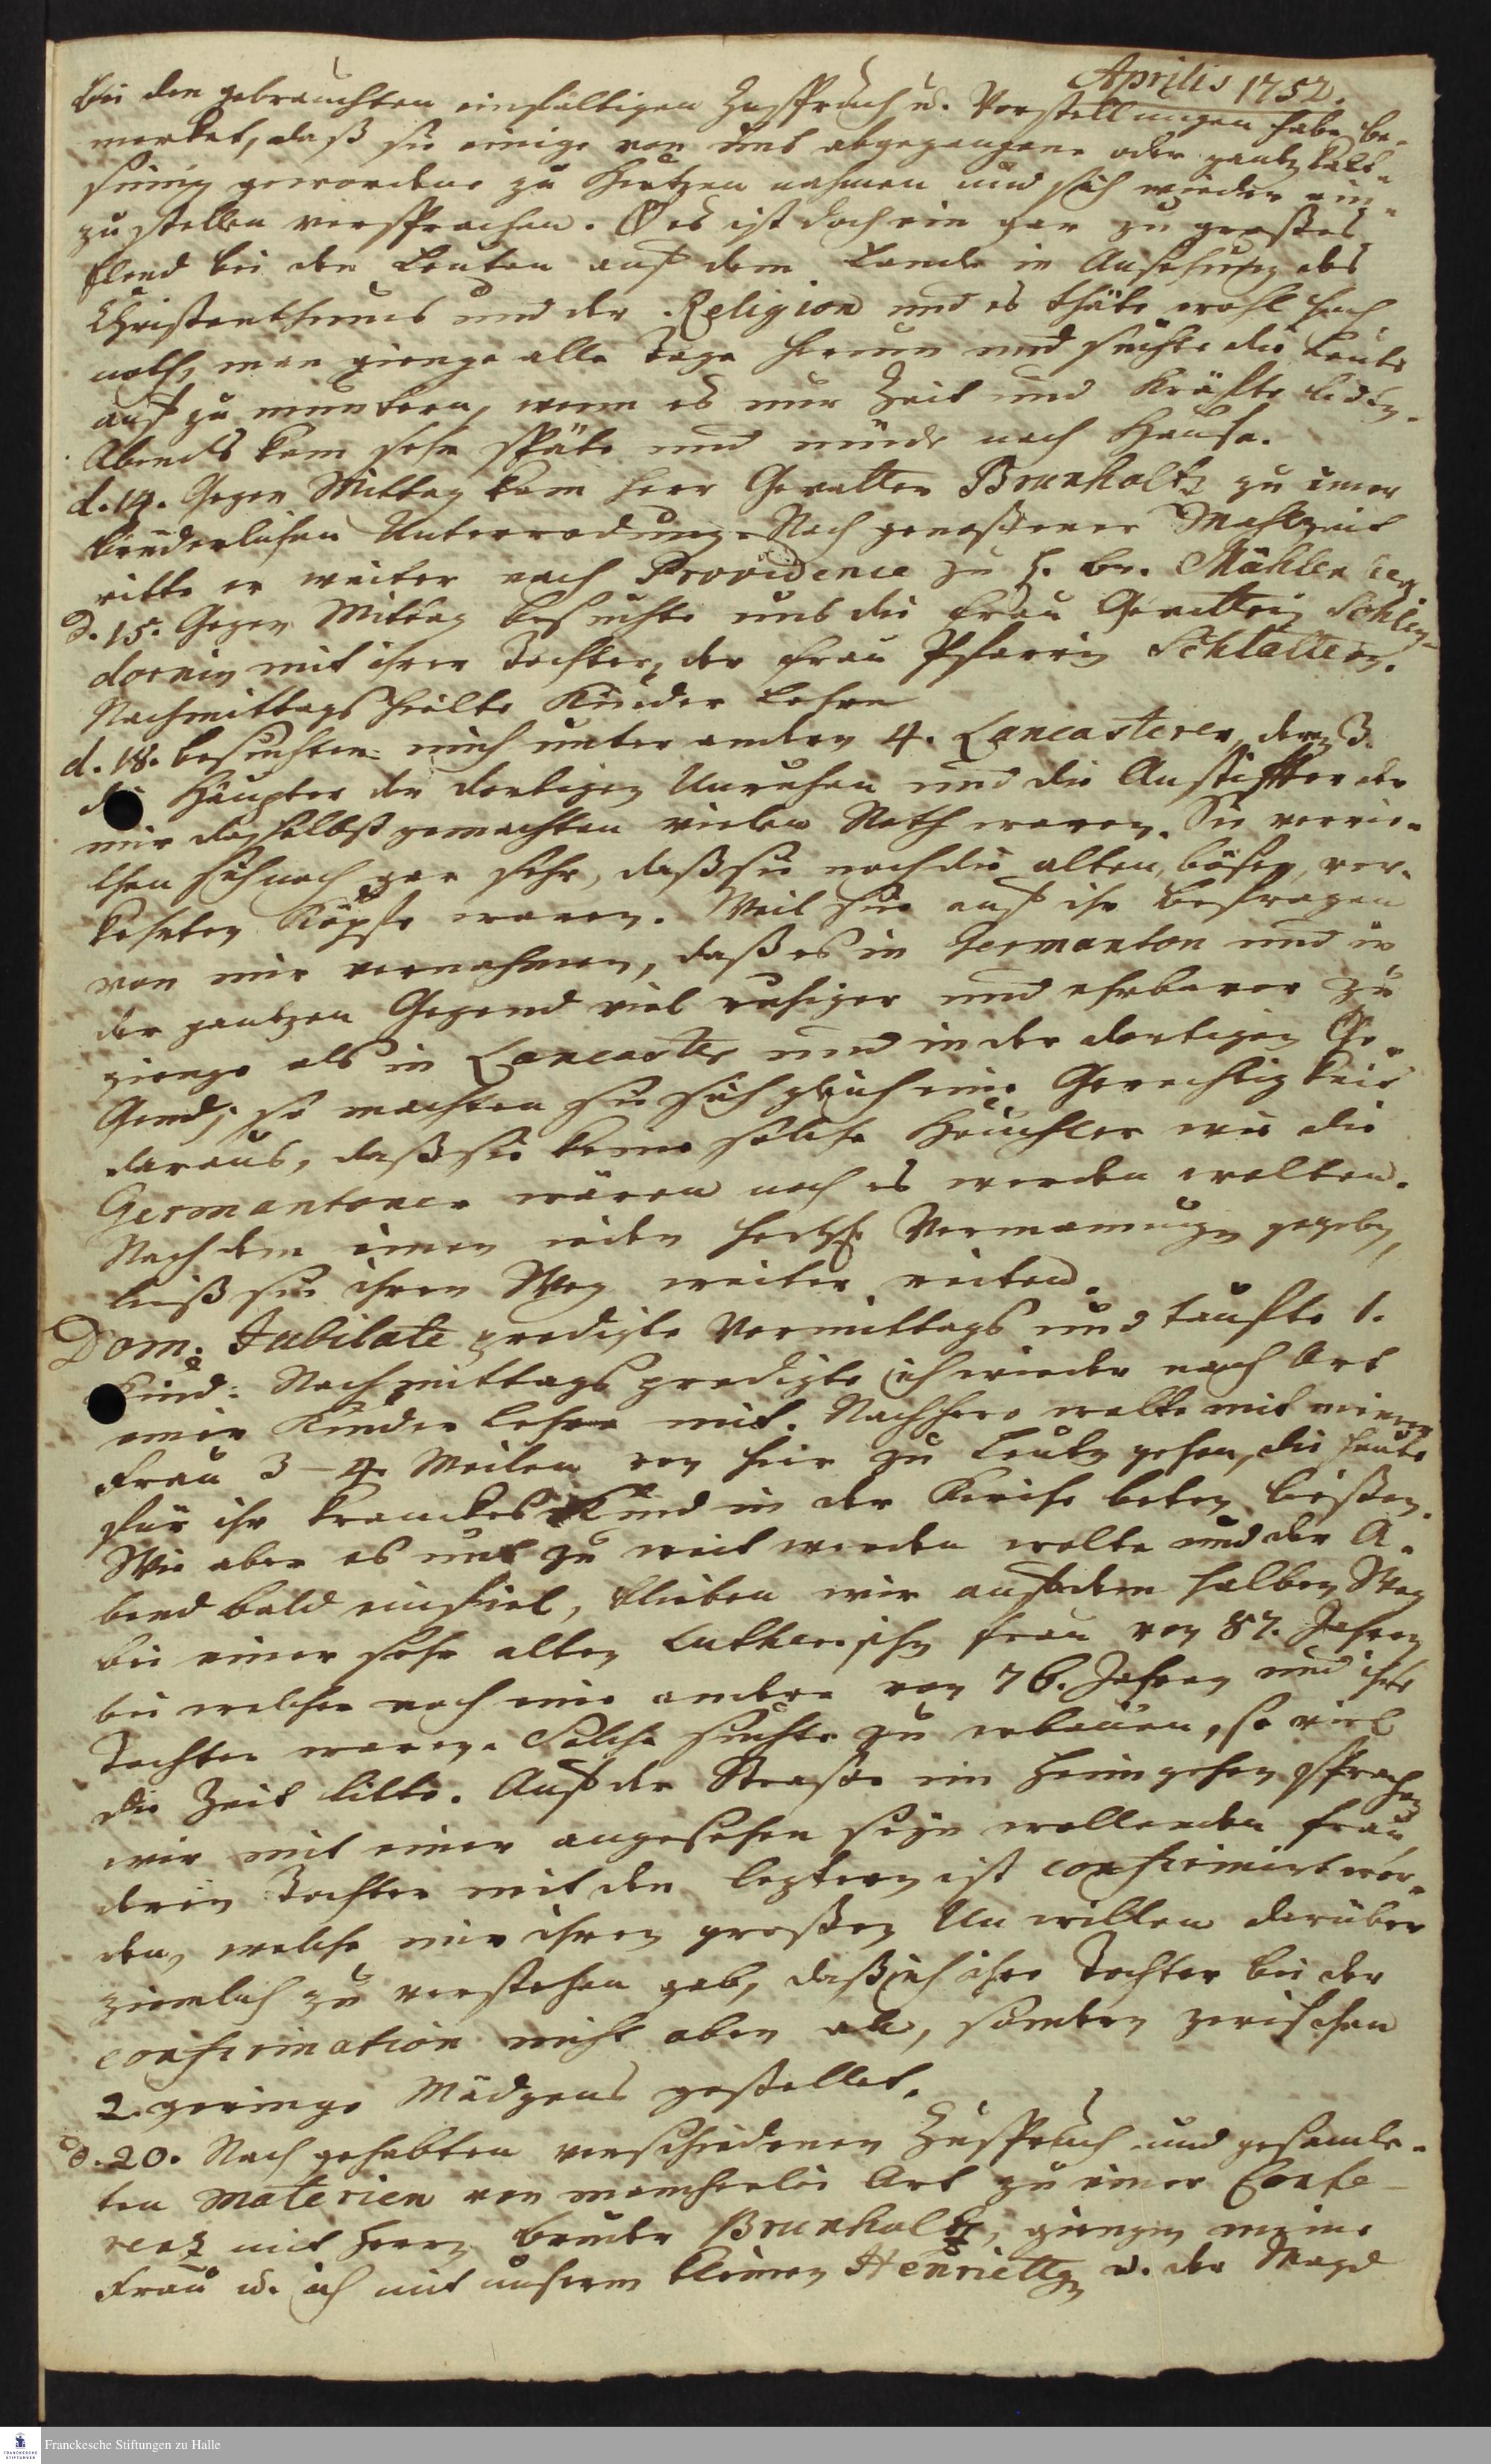 Aprilis 1752.
bei den gebrauchten einfältigen Zuspruch u. Vorstellungen habe be-
merket, daß sie einige von uns abgegangene oder gantz kalt-
sinnig gewordene zu Hertzen nahmen und sich wieder ein-
zu stellen versprachen. O es ist doch ein gar zu großes
Elend bei den Leuten auf dem Lande in Ansehung des
Christenthums und der Religion und es thäte wohl hoch
noth, man gienge alle Tage herum und suchte die Leute
auf zu muntern, wenn es nur Zeit und Kräfte lidten.
Abends kam sehr späte und müde nach Hause.
d. 14. Gegen Mittag kam Herr Gevatter Brunholtz zu einer
brüderlichen Unterredung. Nach genoßener Mahlzeit
ritte er weiter nach Providence zu H. br. Mühlenberg
d. 15. Gegen Mittag besuchte uns die Frau Gevattrin Schley-
dornin mit ihrer Tochter, der Frau Pfarrin Schlattern.
Nachmittags hielte Kinder Lehre
d. 18. besuchten mich unter andern 4. Lancasterer, deren 3.
die Häupter der dortigen Unruhen und die Anstiffter der
mir daselbst gemachten vielen Noth waren. Sie verrie-
then sich noch gar sehr, daß sie noch die alten, bösen, ver-
kehrten Köpfe waren. Weil sie auf ihr Befragen
von mir vernahmen, daß es in Germanton und in
der gantzen Gegend viel ruhiger und ehrbarer zu
gienge als in Lancaster und in der dortigen Ge-
gend; so machten sie sich gleich eine Gerechtigkeit
daraus, daß sie keine solche Heuchler wie die
Germantoner wären noch es werden wolten.
Nach dem einem ieden hertzl. Vermanungen gegeben,
ließ sie ihren Weg weiter reiten.
Dom. Jubilate predigte Vormittags und taufte 1.
Kind. Nachmittags predigte ich wieder nach Art
einer Kinder Lehre mit. Nachhero wolte mit meiner
Frau 3–4. Meilen von hier zu Leuten gehen, die heute
für ihr kranckes Kind in der Kirche beten ließen.
Wie aber es uns zu weit werden wolte und der A-
bend bald einfiel, blieben wir auf dem halben Weg
bei einer sehr alten Lutherischen Frau von 87. Jahren
bei welcher noch eine andere von 76. Jahren und ihre
Tochter waren. Solche suchte zu erbauen, so viel
die Zeit litte. Auf der Straße im Heimgehen sprachen
wir mit einer angesehen seyn wollenden Frau,
deren Tochter mit den leztern ist confirmirt wor-
den, welche mir ihren großen Unwillen darüber
ziemlich zu verstehen gab, daß ich ihre Tochter bei der
confirmation nicht oben an, sondern zwischen
2. geringe Mädgens gestellet.
d. 20. Nach gehabten verschiedenen Zuspruch und gesamle-
ten Materien von mancherlei Art zu einer Confe-
rentz mit Herrn Bruder Brunholtz, giengen meine
Frau u. ich mit unserm kleinen Henrietten u. der Magd
Franckesche Stiftungen zu Halle
FRANCKESCHE
STIFTUNGEN